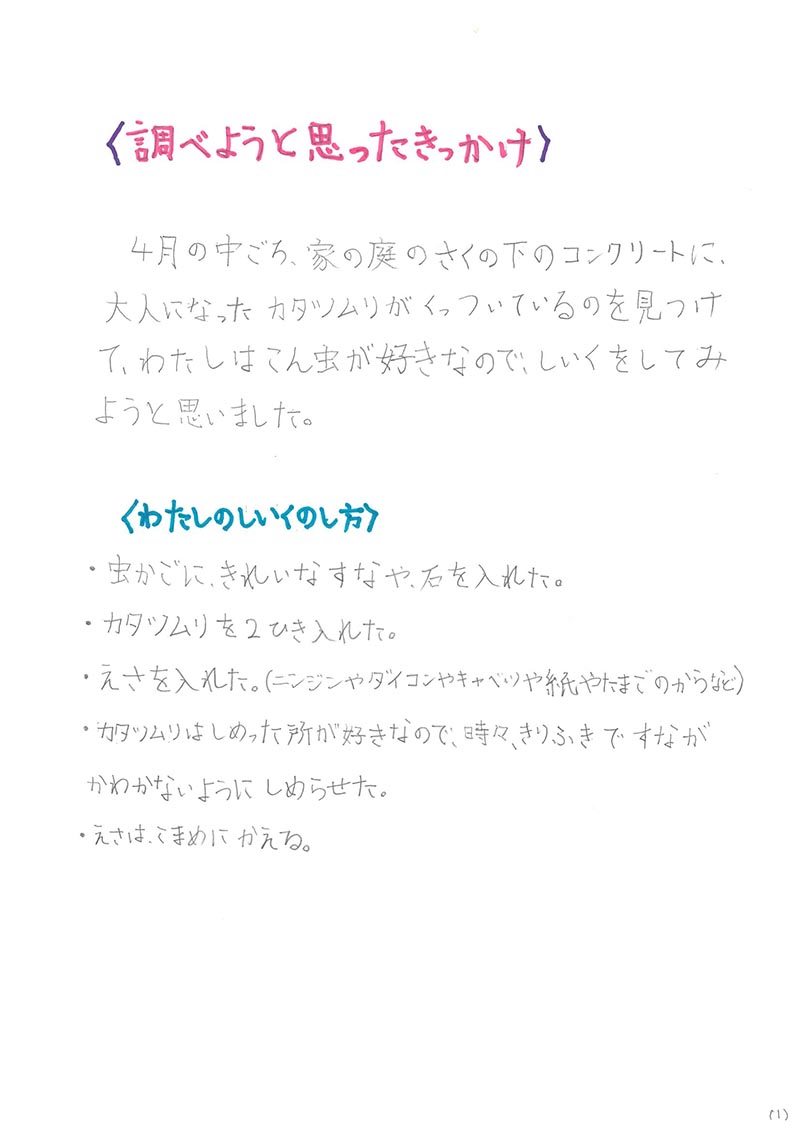 〈調べようと思ったきっかけ〉
4月の中ごろ、家の庭のさくの下のコンクリートに、
大人になったカタツムリがくっついているのを見つけ
て、わたしはこん虫が好きなので、しいくをしてみ
ようと思いました。
〈わたしのしいくのし方〉
・虫かごに、きれいなすなや、石を入れた。
・カタツムリを2ひき入れた。
・えさを入れた。(ニンジンやダイコンやキャベツや紙やたまごのからなど)
・カタツムリはしめった所が好きなので、時々、きりふきですなが
かわかないようにしめらせた。
・えさは、こまめにかえる。
(1)